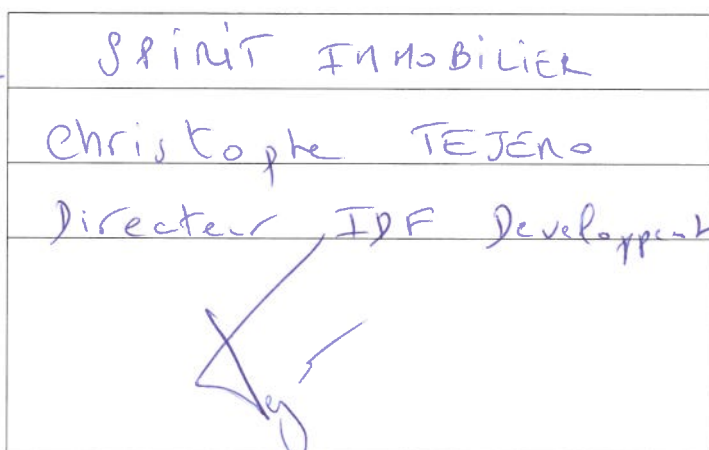 SPIRIT IMMOBILIER
Christophe TEJERO
Directeur IDF Developpent